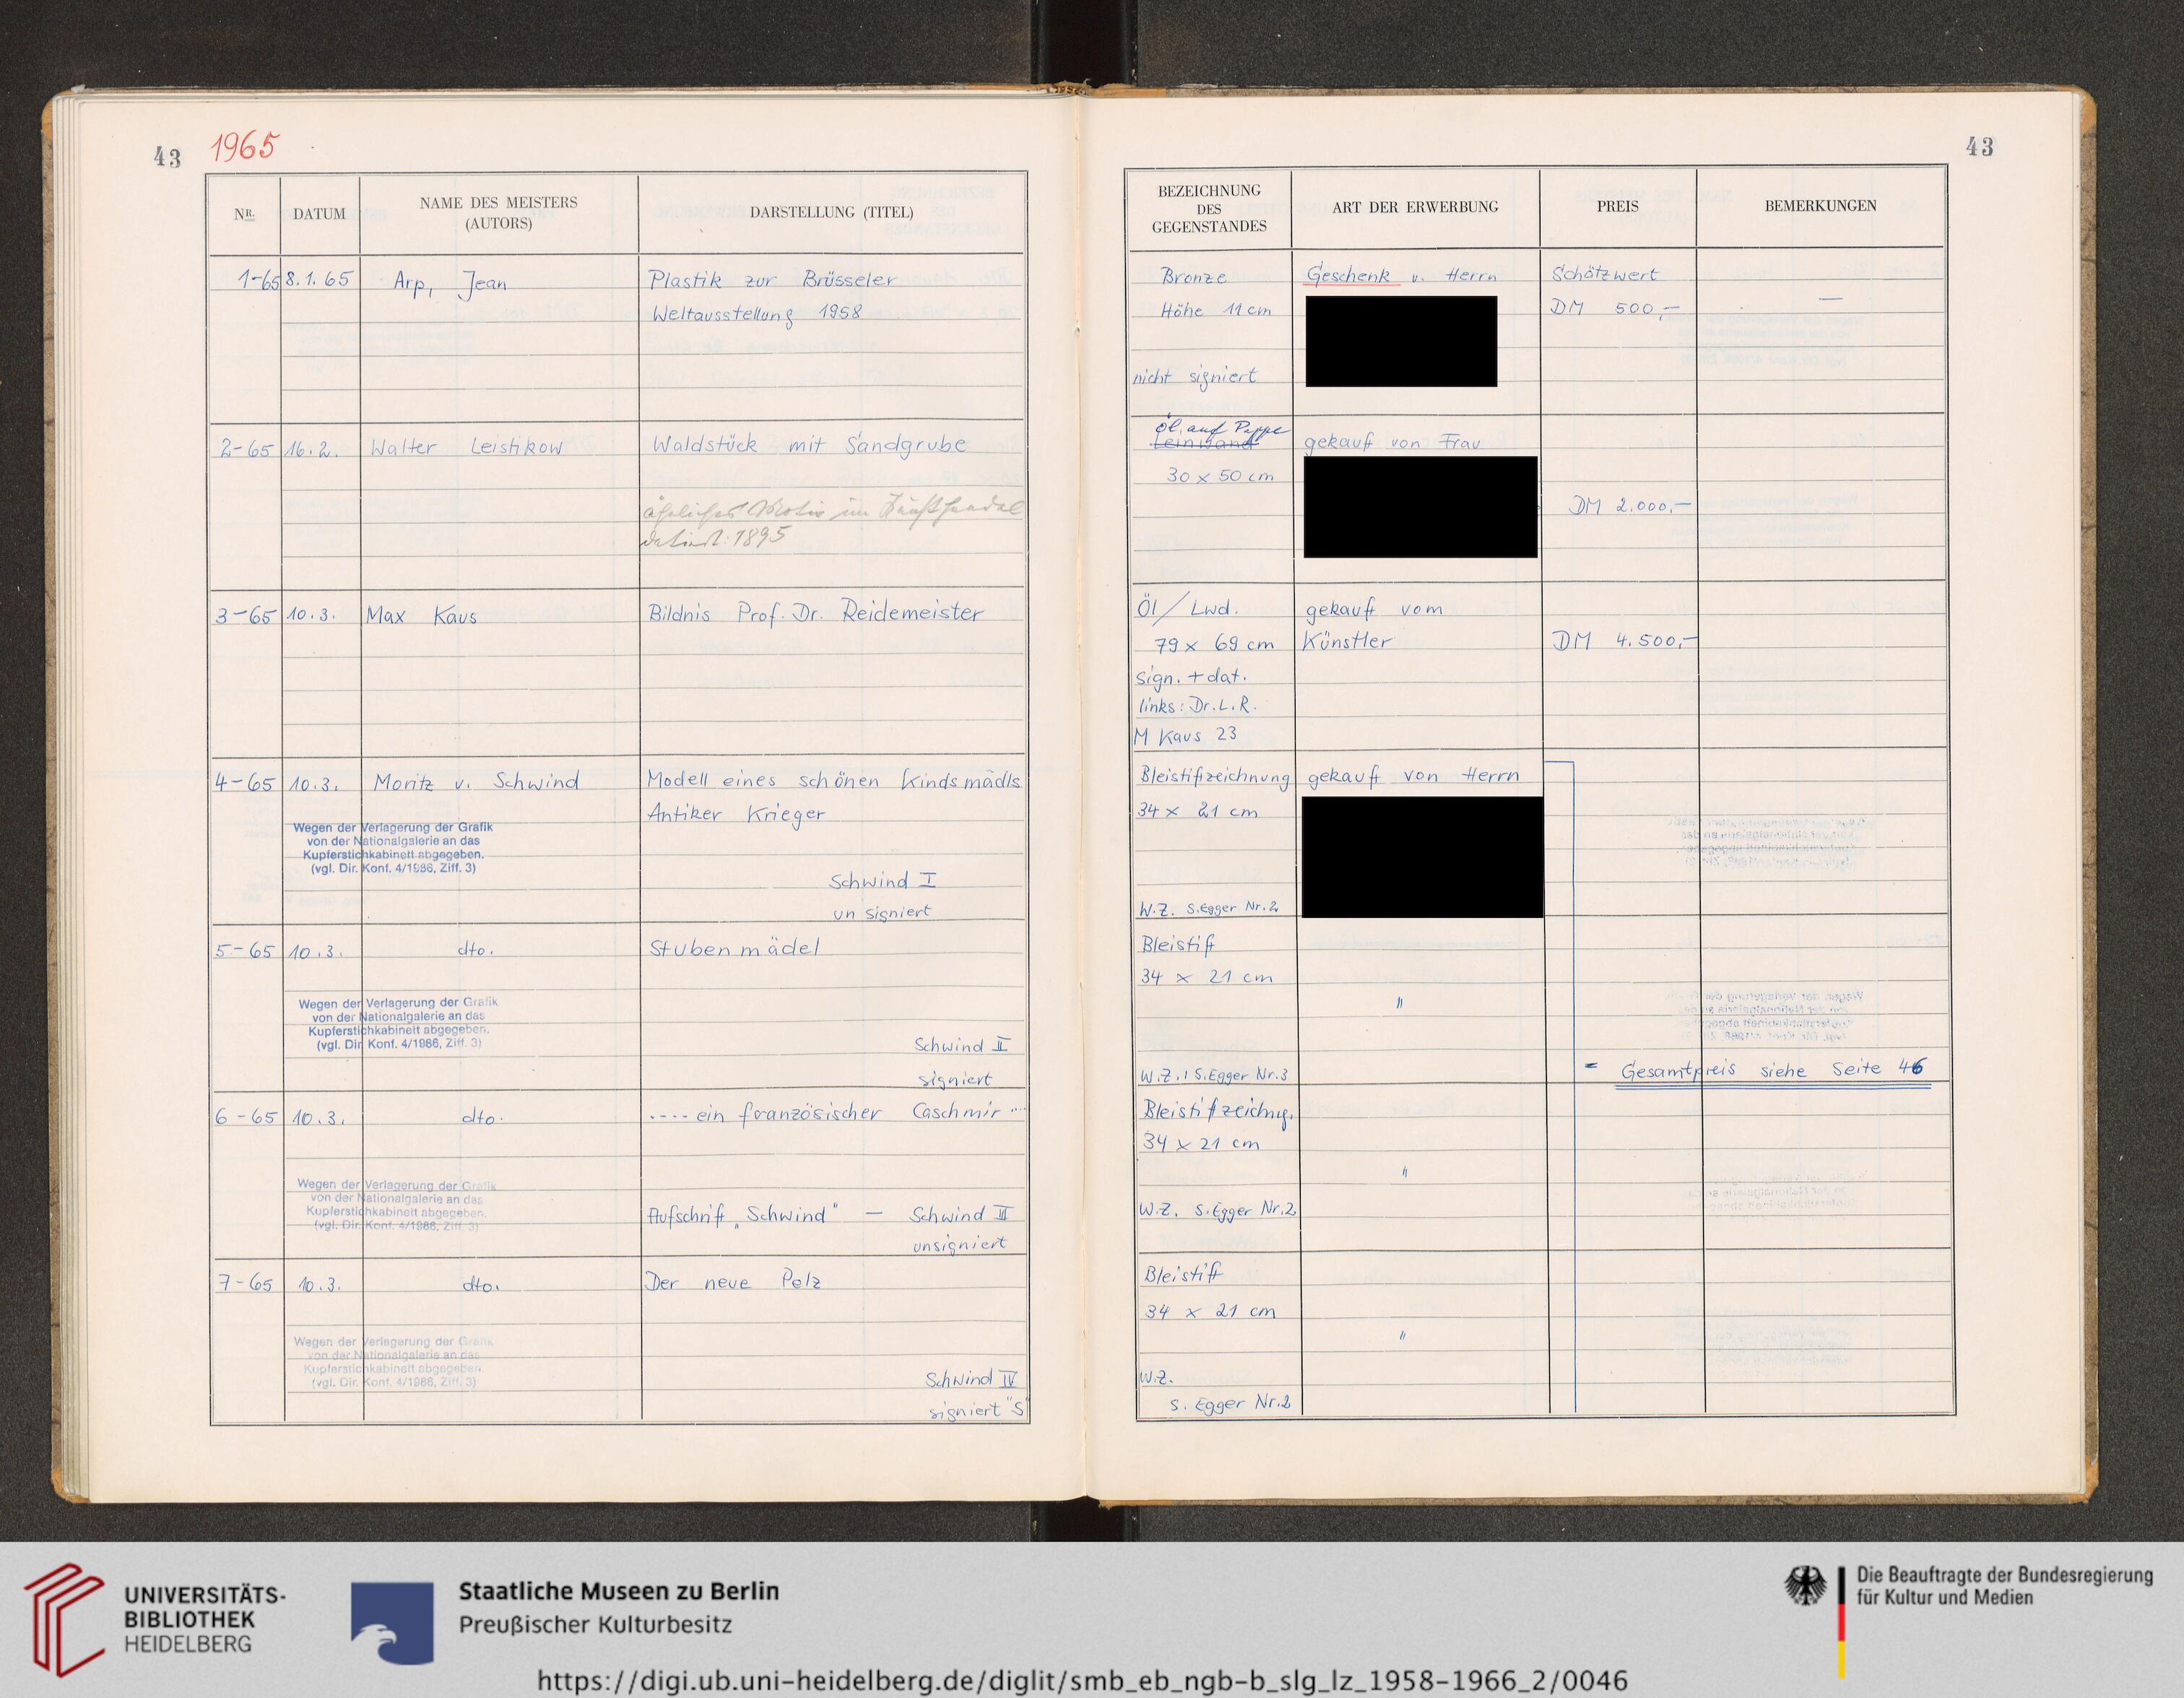 43
1965
NR.
DATUM
NAME DES MEISTERS
(AUTORS)
DARSTELLUNG (TITEL)
1-65
8.1.65
Arp, Jean
Plastik zur Brüsseler
Weltausstellung 1958
2-65
16.2.
Walter Leistikow
Waldstück mit Sandgrube
ähnliches Motiv im Kunsthandel
datiert: 1895
3-65
10.3.
Max Kaus
Bildnis Prof. Dr. Reidemeister
4-65
10.3.
Moritz v. Schwind
Modell eines schönen Kindsmädls
Antiker Krieger
Wegen der Verlagerung der Grafik
von der Nationalgalerie an das
Kupferstichkabinett abgegeben.
(vgl. Dir. Konf. 4/1986, Ziff. 3)
Schwind I
unsigniert
5-65
10.3.
dto.
Stubenmädel
Wegen der Verlagerung der Grafik
von der Nationalgalerie an das
Kupferstichkabinett abgegeben.
(vgl. Dir. Konf. 4/1986, Ziff. 3)
Schwind II
signiert
6-65
10.3.
dto.
.... ein französischer Caschmir "
Wegen der Verlagerung der Grafik
von der Nationalgalerie an das
Kupferstichkabinett abgegeben.
(vgl. Dir. Konf. 4/1986, Ziff. 3)
Aufschrift „Schwind" — Schwind III
unsigniert
7-65
10.3.
dto.
Der neue Pelz
Wegen der Verlagerung der Grafik
von der Nationalgalerie an das
Kupferstichkabinett abgegeben.
(vgl. Dir. Konf. 4/1986, Ziff. 3)
Schwind IV
signiert "S
43
BEZEICHNUNG
DES
GEGENSTANDES
ART DER ERWERBUNG
PREIS
BEMERKUNGEN
Bronze
Höhe 11 cm
nicht signiert
Geschenk v. Herrn
Schätzwert
DM 500,—
—
Öl auf Pappe
Leinwand
30 x 50 cm
gekauft von Frau
DM 2.000,—
Öl / Lwd.
79 x 69 cm
sign. + dat.
links: Dr. L. R.
M Kaus 23
gekauft vom
Künstler
DM 4.500,—
Bleistiftzeichnung
34 x 21 cm
W.Z. s. Egger Nr. 2
gekauft von Herrn
Bleistift
34 x 21 cm
W.Z. s. Egger Nr. 3
"
= Gesamtpreis siehe Seite 46
Bleistiftzeichng.
34 x 21 cm
W.Z. s. Egger Nr. 2
"
Bleistift
34 x 21 cm
W.Z.
s. Egger Nr. 2
"
UNIVERSITÄTS-
BIBLIOTHEK
HEIDELBERG
Staatliche Museen zu Berlin
Preußischer Kulturbesitz
Die Beauftragte der Bundesregierung
für Kultur und Medien
https://digi.ub.uni-heidelberg.de/diglit/smb_eb_ngb-b_slg_lz_1958-1966_2/0046